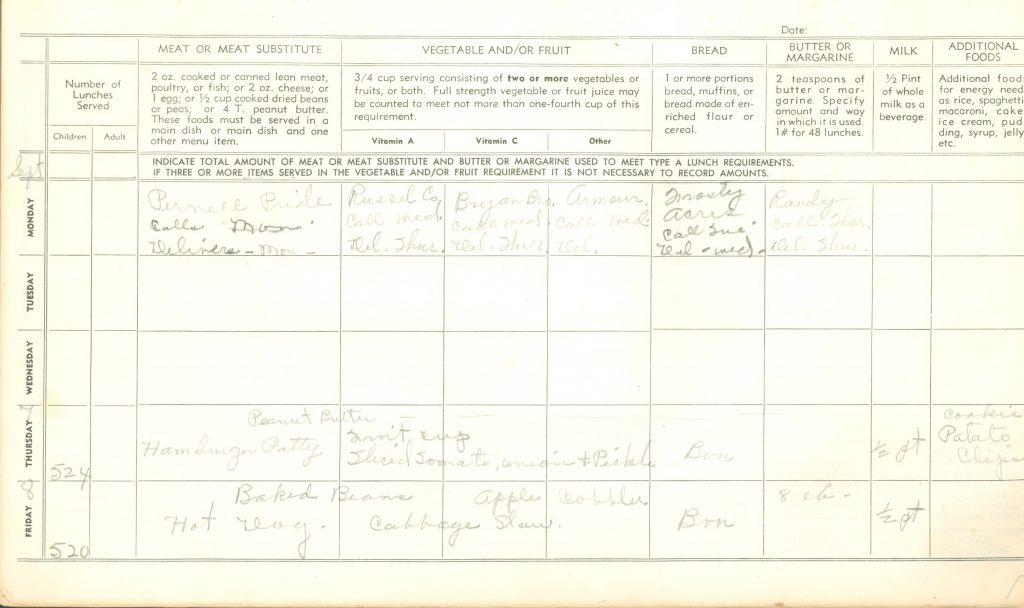 Date:
MEAT OR MEAT SUBSTITUTE
VEGETABLE AND/OR FRUIT
BREAD
BUTTER OR
MARGARINE
MILK
ADDITIONAL
FOODS
Number of
Lunches
Served
Children
Adult
2 oz. cooked or canned lean meat,
poultry, or fish; or 2 oz. cheese; or
1 egg; or ½ cup cooked dried beans
or peas; or 4 T. peanut butter.
These foods must be served in a
main dish or main dish and one
other menu item.
3/4 cup serving consisting of two or more vegetables or
fruits, or both. Full strength vegetable or fruit juice may
be counted to meet not more than one-fourth cup of this
requirement.
Vitamin A
Vitamin C
Other
1 or more portions
bread, muffins, or
bread made of en-
riched flour or
cereal.
2 teaspoons of
butter or mar-
garine. Specify
amount and way
in which it is used.
1# for 48 lunches.
½ Pint
of whole
milk as a
beverage.
Additional foods
for energy need
as rice, spaghetti
macaroni, cake
ice cream, pud
ding, syrup, jelly
etc.
INDICATE TOTAL AMOUNT OF MEAT OR MEAT SUBSTITUTE AND BUTTER OR MARGARINE USED TO MEET TYPE A LUNCH REQUIREMENTS.
IF THREE OR MORE ITEMS SERVED IN THE VEGETABLE AND/OR FRUIT REQUIREMENT IT IS NOT NECESSARY TO RECORD AMOUNTS.
Sept
MONDAY
Pernell Pride
Calls Mon
Delivers - Mon -
Russel Co.
Call Wed.
Del. Thur.
Bryan Bro.
Call Wed.
Del. Thur.
Armour.
Call Wed.
Del.
Frosty
Acres
Call Tue.
Del - Wed -
Randy
Call. Thur.
Del. Thur.
TUESDAY
WEDNESDAY
THURSDAY 7
524
Peanut Butter
Hamburger Patty
Fruit cup
Sliced Tomato, onion & Pickle
Bun
½ pt
Cookie
Patato
Chips
FRIDAY 8
520
Baked Beans
Hot Dog.
Apple Cobbler
Cabbage Slaw.
Bun
8 lb -
½ pt